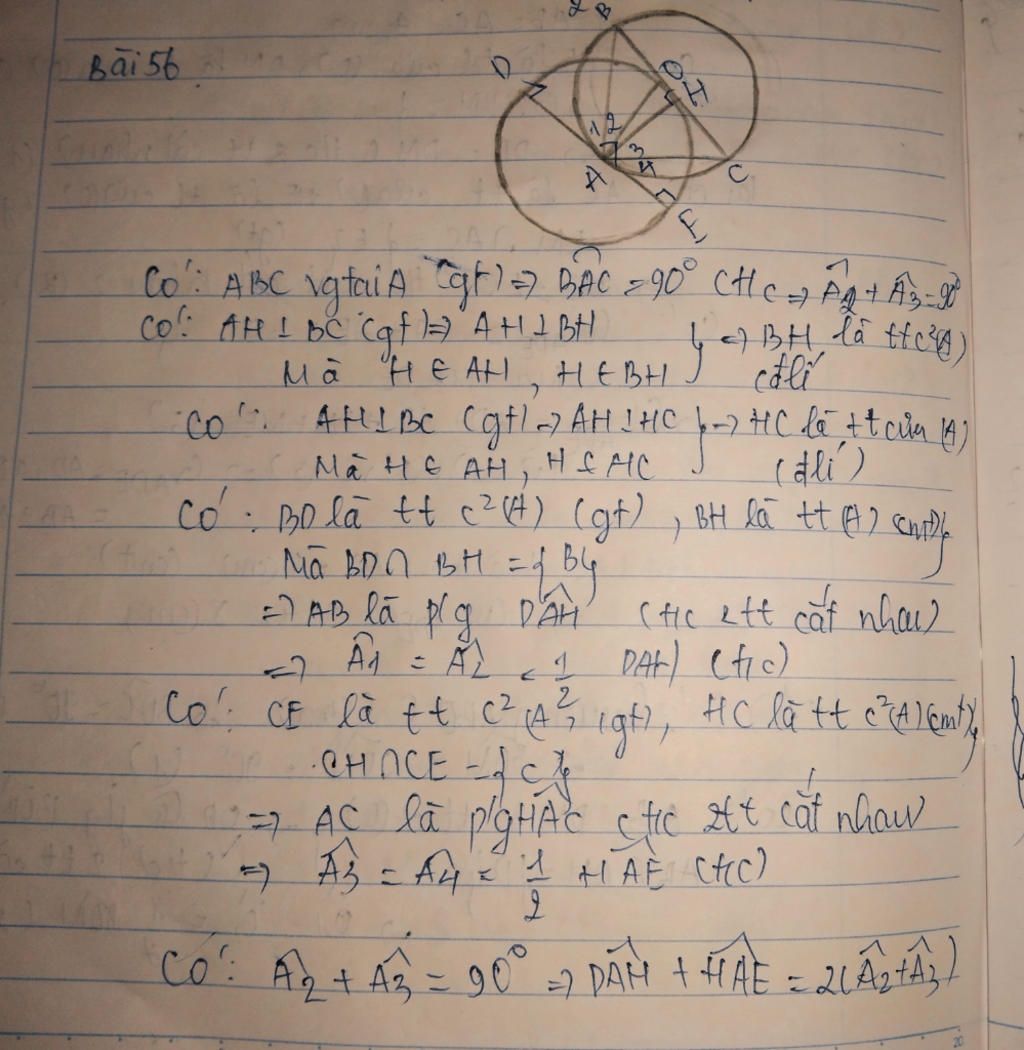 Bài 56
B
D
O
H
1 2
3
4
A
C
E
Có: ABC vg tại A (gt) => BAC = 90° (t/c => A2 + A3 = 90°
Có: AH ⊥ BC (gt) => AH ⊥ BH } => BH là tt c²(A)
Mà H ∈ AH, H ∈ BH (đlí
Có: AH ⊥ BC (gt) => AH ⊥ HC } => HC là tt của (A)
Mà H ∈ AH, H ∈ HC (đlí)
Có: BD là tt c²(A) (gt), BH là tt (A) (cmt) }
Mà BD ∩ BH = {B}
=> AB là p/g DAH (t/c 2tt cắt nhau)
=> A1 = A2 = 1/2 DAH (t/c)
Có: CE là tt c²(A), (gt), HC là tt c²(A) (cmt) }
CH ∩ CE = {C}
=> AC là p/g HAC (t/c 2tt cắt nhau)
=> A3 = A4 = 1/2 HAE (t/c)
Có: A2 + A3 = 90° => DAH + HAE = 2(A2 + A3)
20